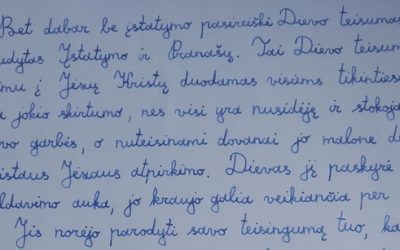 Bet dabar be įstatymo pasireiškė Dievo teisumas
udytas Įstatymo ir Pranašų. Tai Dievo teisum
imu į Jėzų Kristų duodamas visiems tikinties
a jokio skirtumo, nes visi yra nusidėję ir stokoja
vo garbės, o nuteisinami dovanai jo malone d
istaus Jėzaus atpirkimo. Dievas jį paskyrė
ldavimo auka, jo kraujo galia veikiančia per
Jis norėjo parodyti savo teisingumą tuo, ka